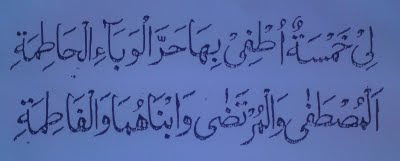 لِيْ خَمْسَةٌ أُطْفِيْ بِهَا حَرَّ الْوَبَآءِ الْحَاطِمَةِ
اَلْمُصْطَفٰى وَالْمُرْتَضٰى وَابْنَاهُمَا وَالْفَاطِمَةِ